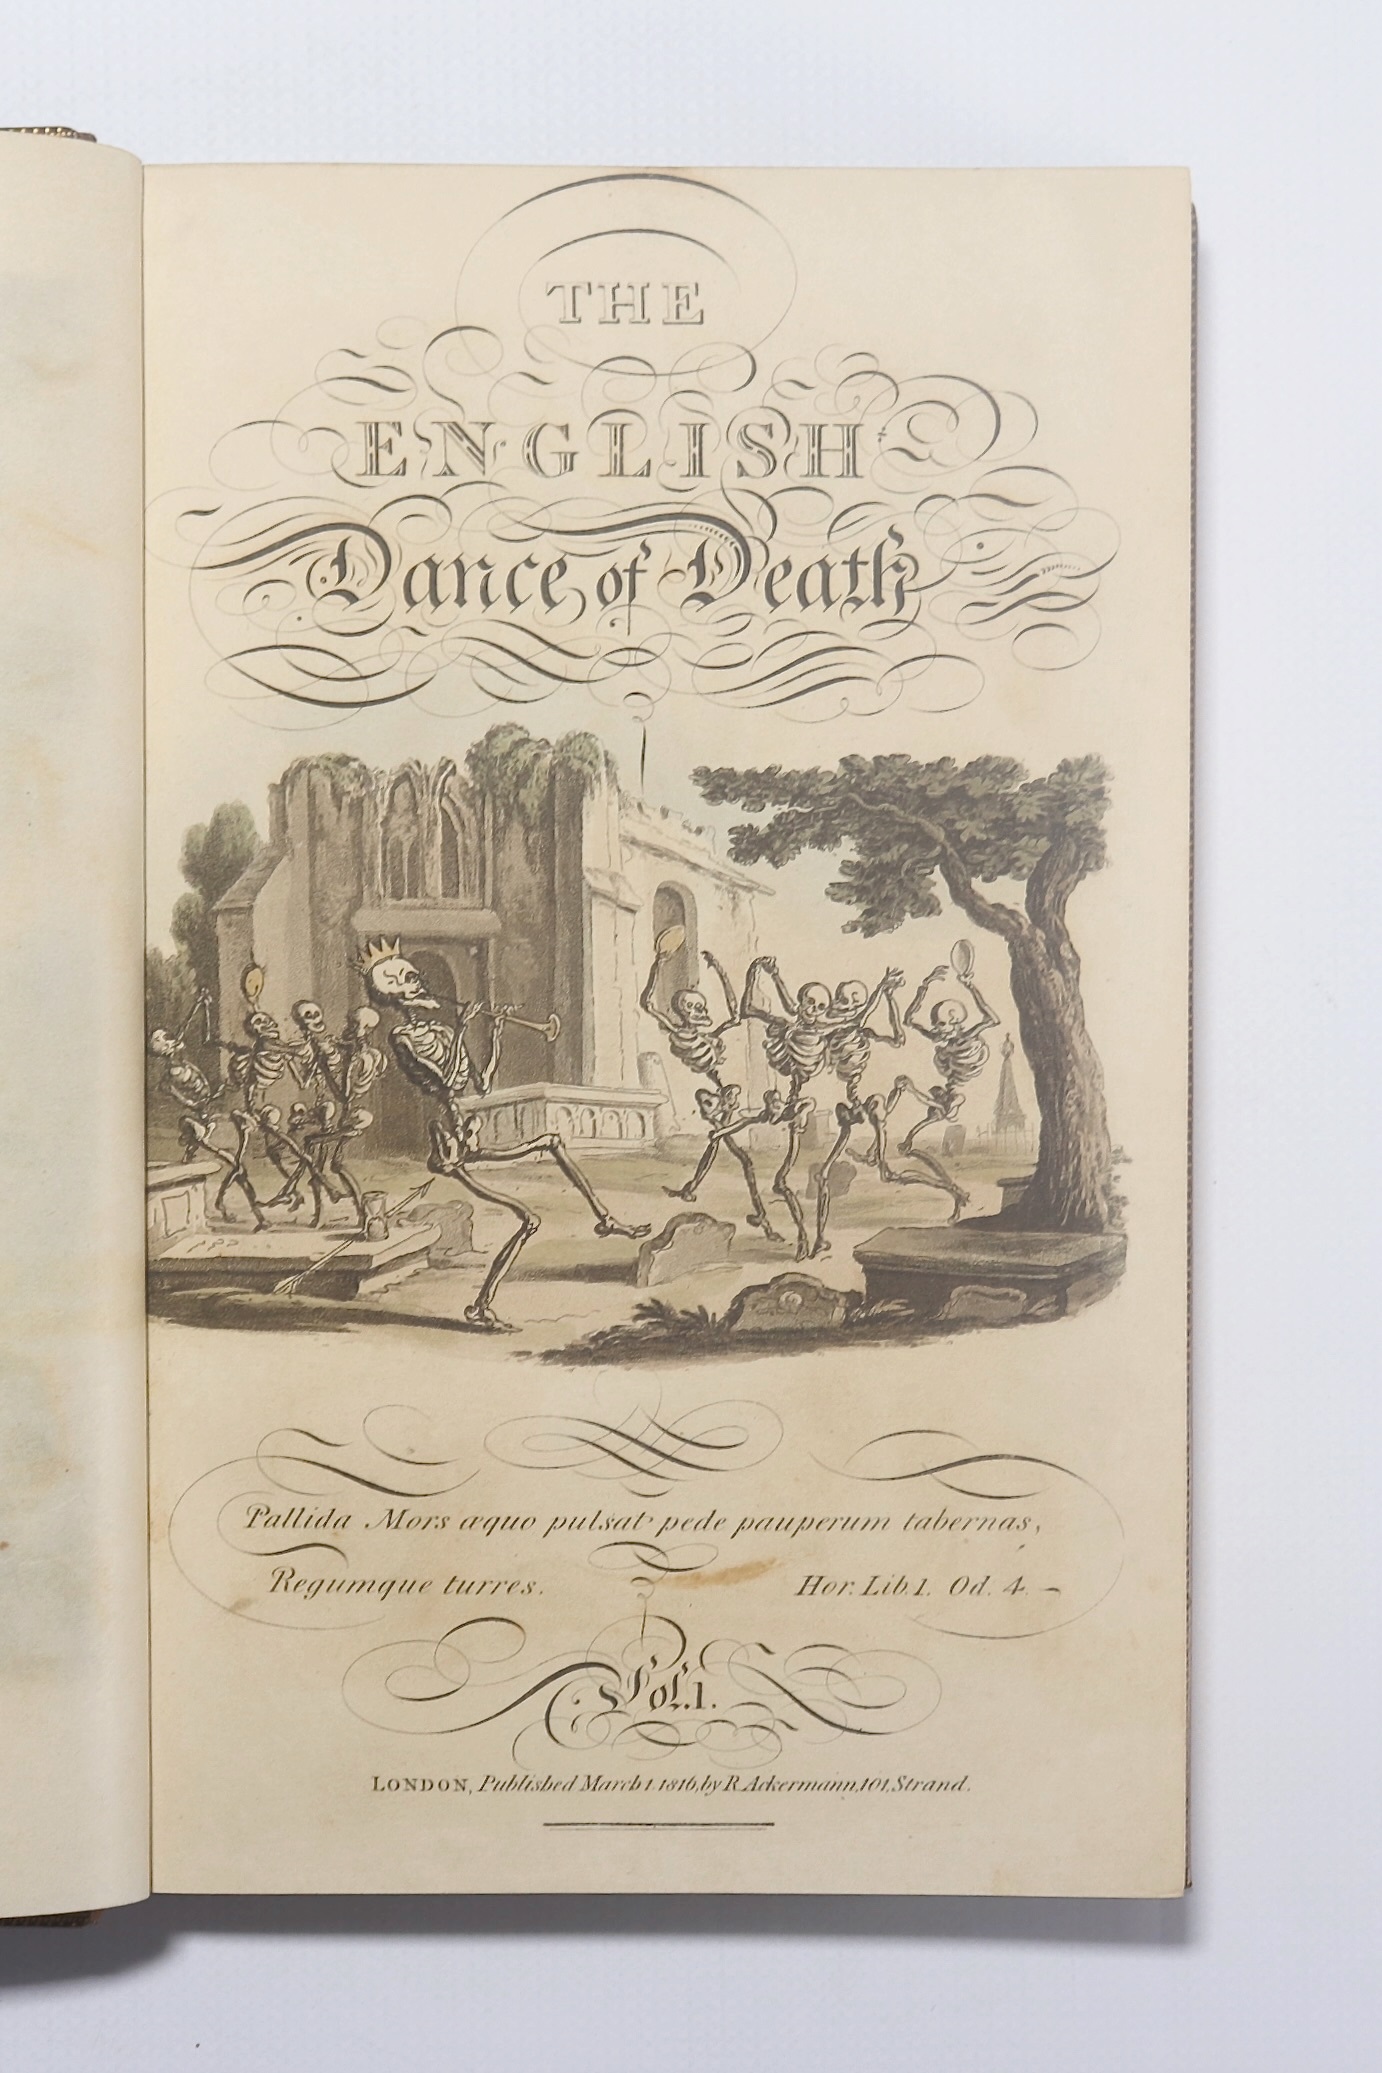 THE
ENGLISH
Dance of Death
Pallida Mors æquo pulsat pede pauperum tabernas,
Regumque turres. Hor. Lib. 1. Od. 4.
Vol. 1.
LONDON, Published March 1. 1816, by R. Ackermann, 101, Strand.